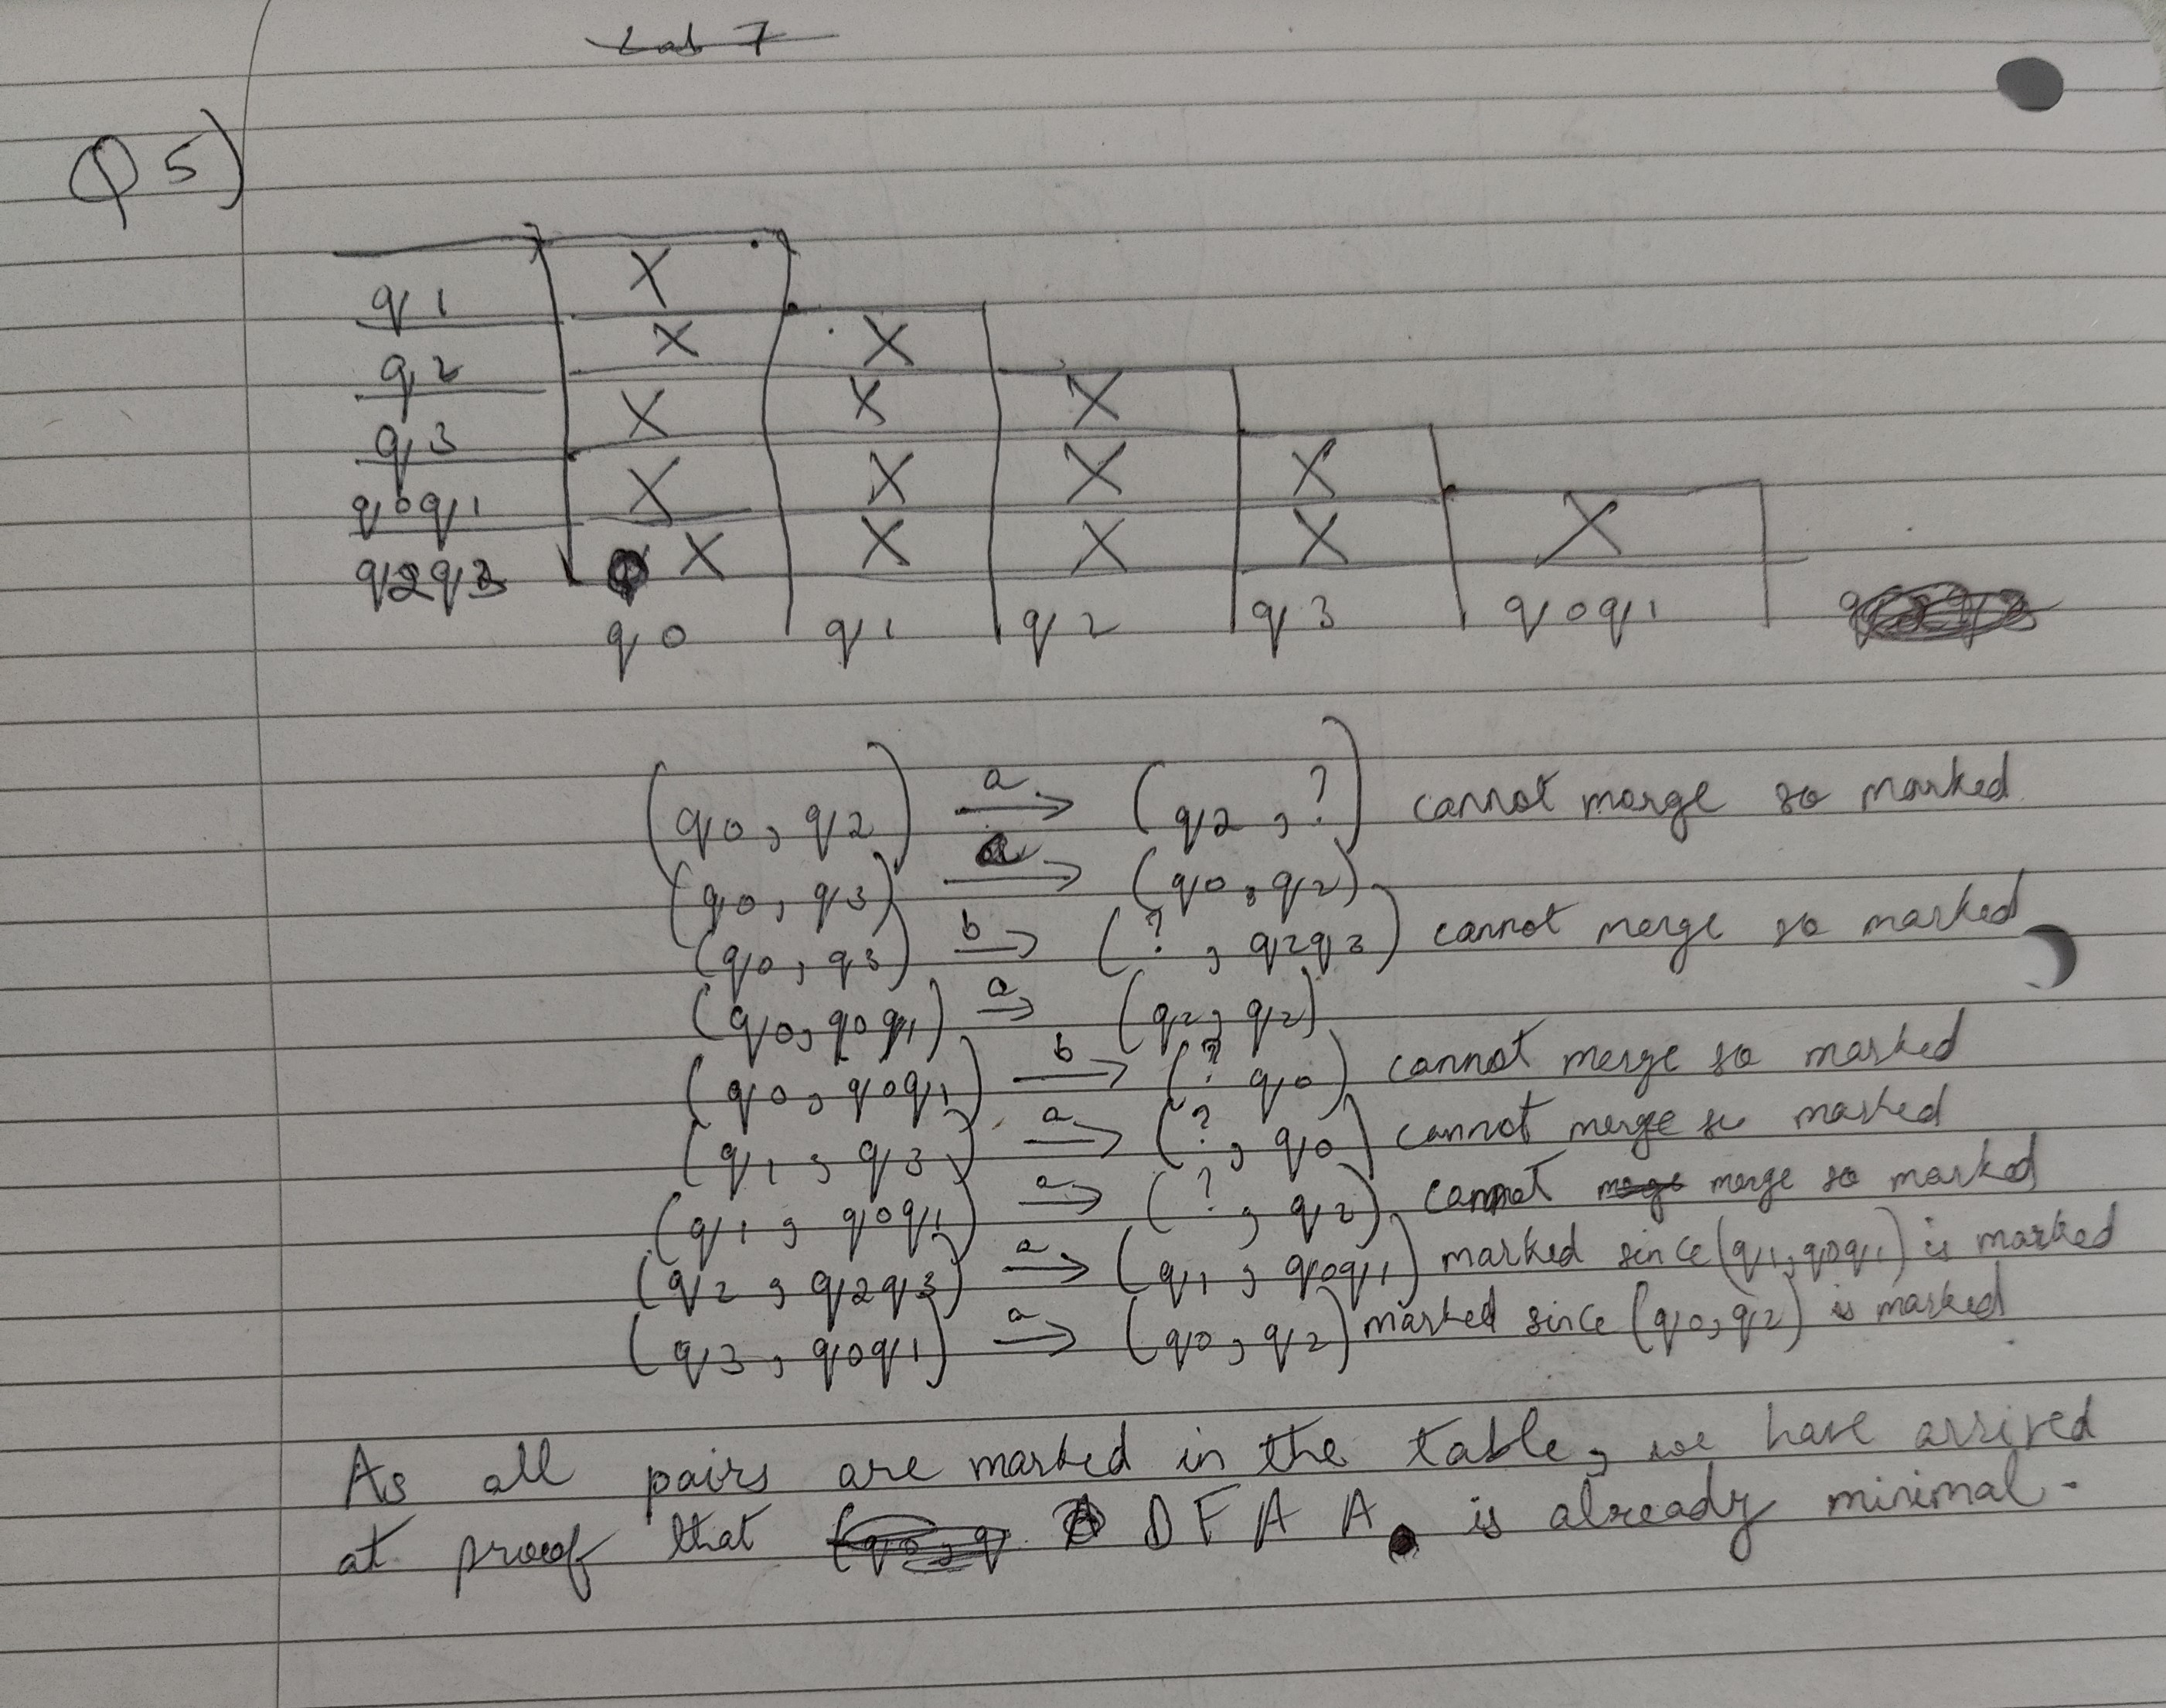 Lab 7
Q5)
q1 X
q2 X X
q3 X X X
q0q1 X X X X
q2q3 X X X X X
q0 q1 q2 q3 q0q1
(q0, q2) a→ (q2, ?) cannot marge so marked
(q0, q3) a→ (q0, q2)
(q0, q3) b→ (?, q2q3) cannot merge so marked
(q0, q0q1) a→ (q2, q2)
(q0, q0q1) b→ (? q0) cannot merge so marked
(q1, q3) a→ (?, q0) cannot merge so marked
(q1, q0q1) a→ (?, q2) cannot merge so marked
(q2, q2q3) a→ (q1, q0q1) marked since (q1, q0q1) is marked
(q3, q0q1) a→ (q0, q2) marked since (q0, q2) is marked
As all pairs are marked in the table, we have arrived
at proof that DFA A is already minimal.